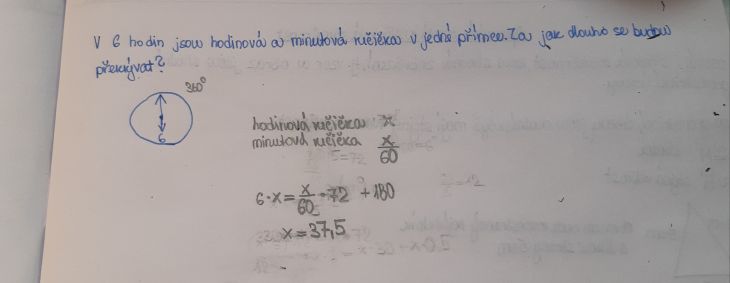 V 6 hodin jsou hodinová a minutová ručička v jedné přímce. Za jak dlouho se budou
překrývat?
360°
6
hodinová ručička x
minutová ručička x/60
5=72
6·x = x/60 · 72 + 180
x = 37,5